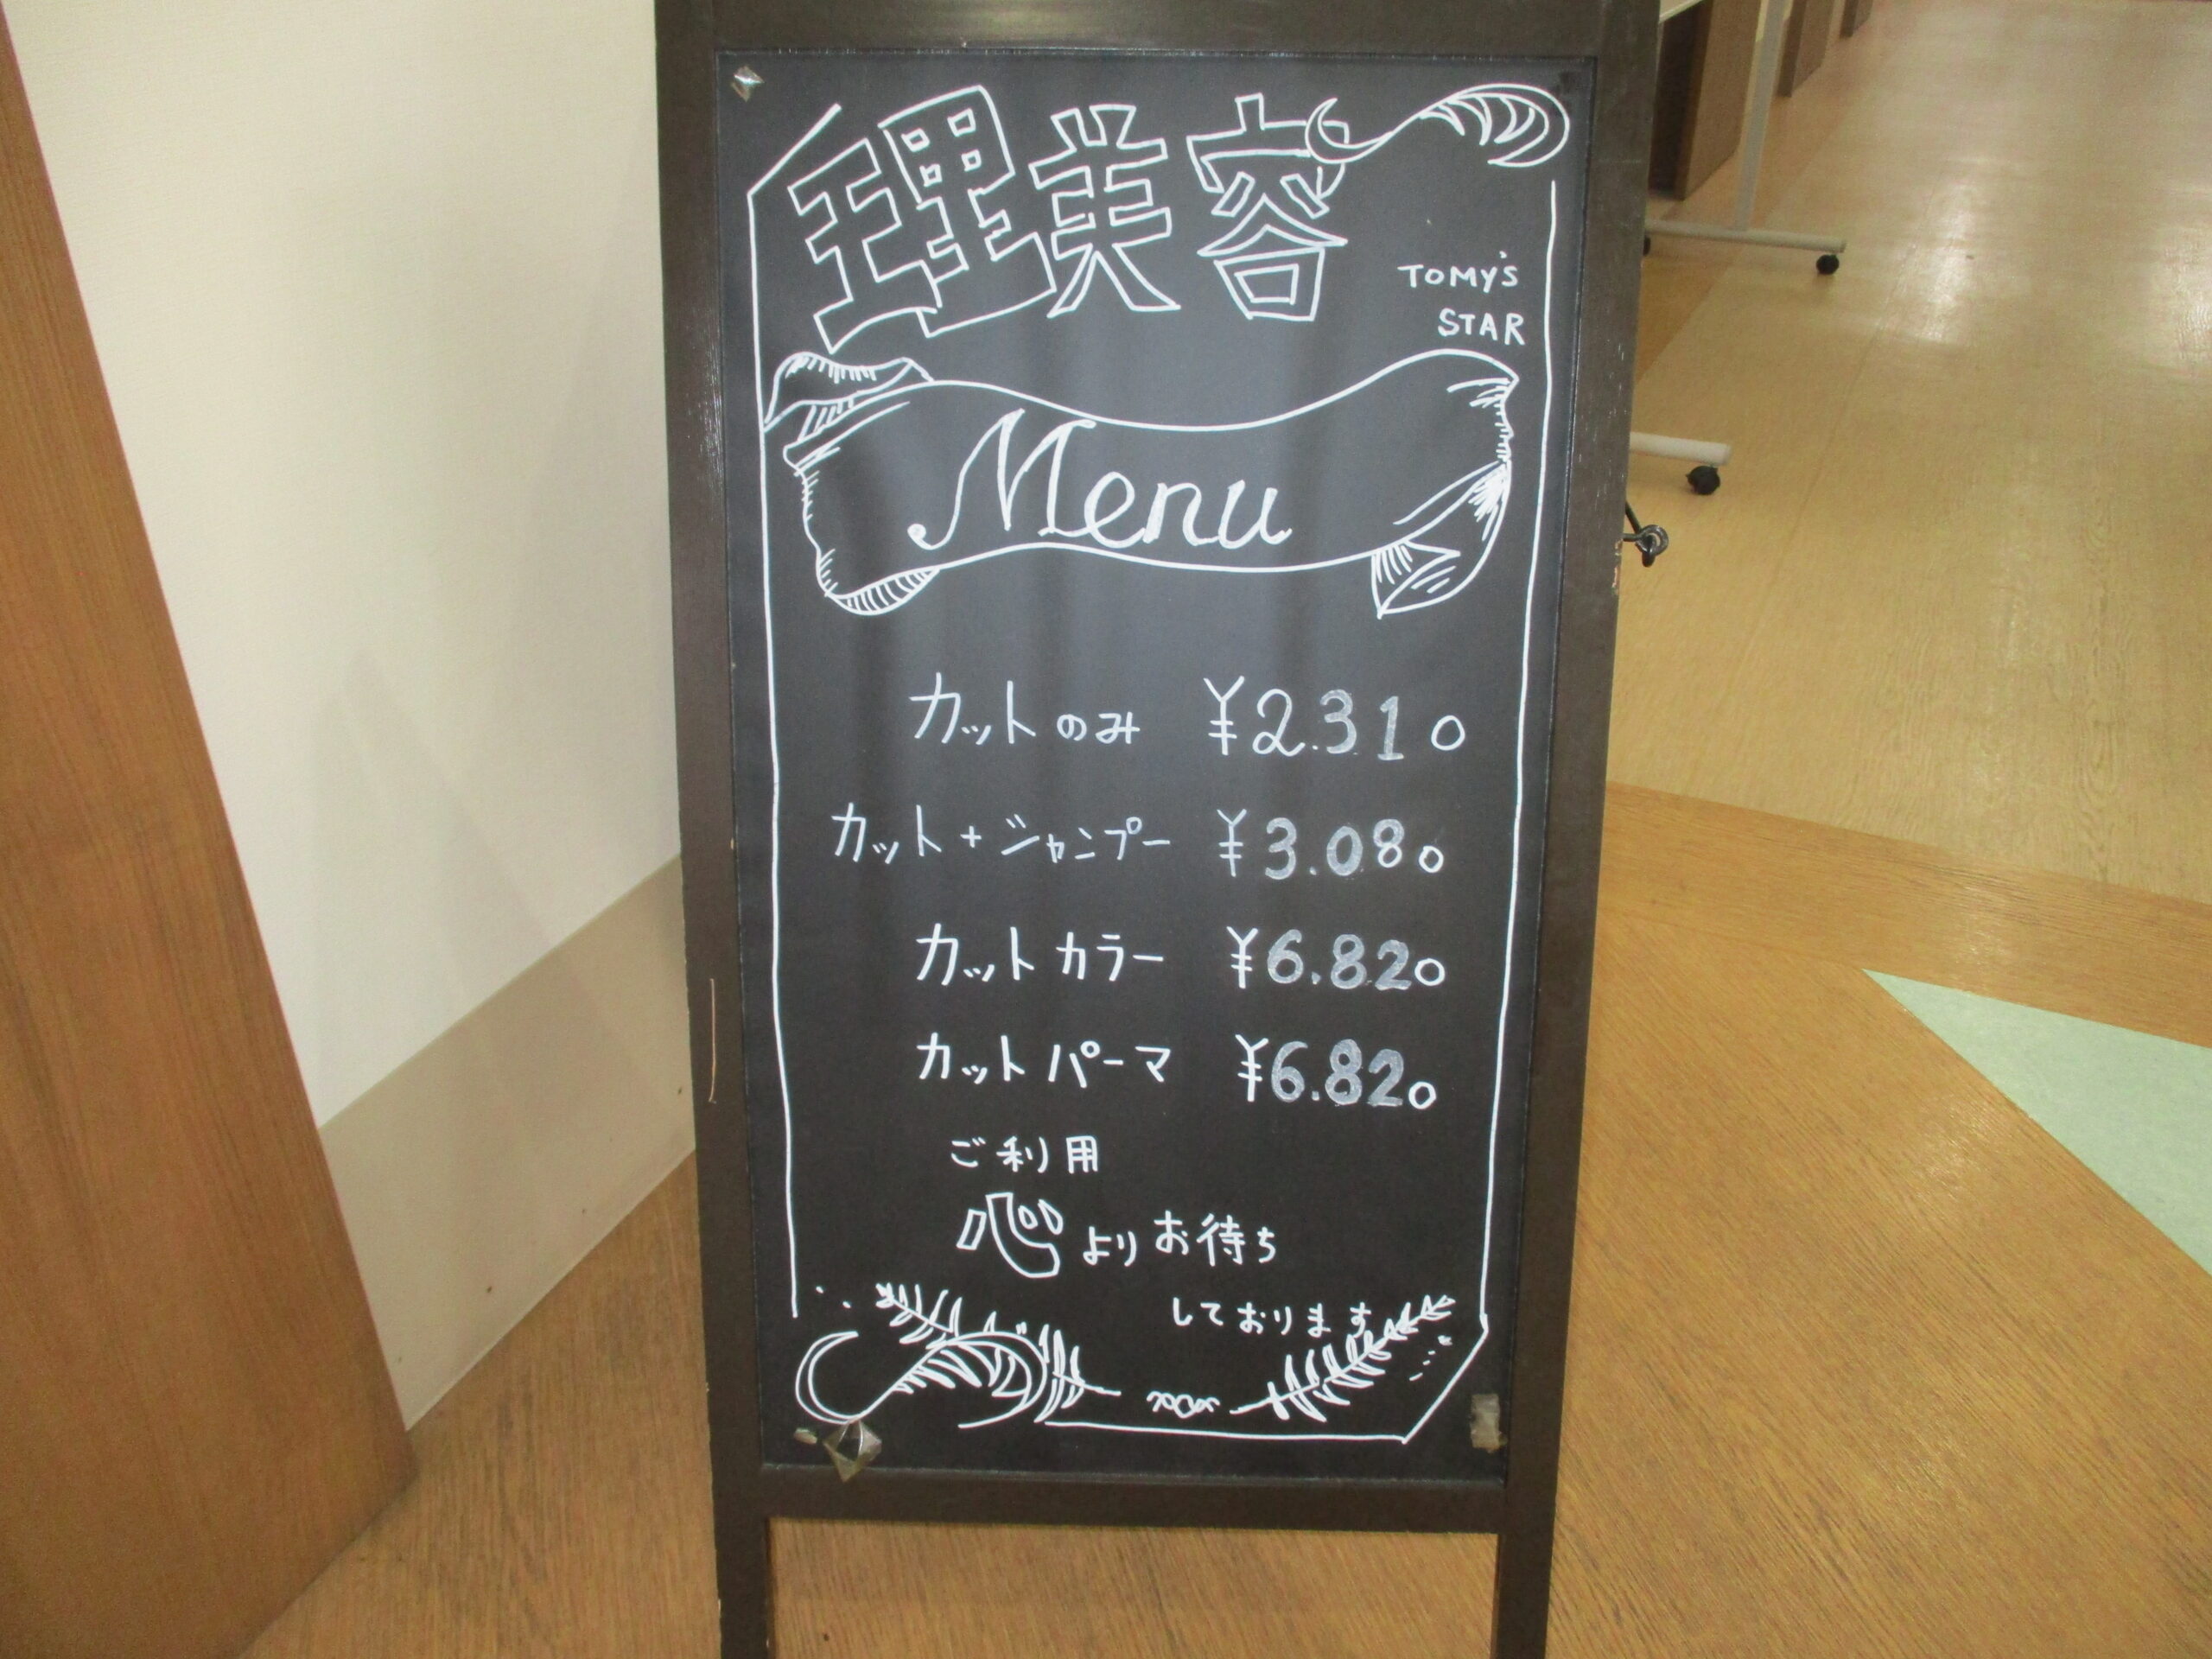 理美容
TOMY'S
STAR
Menu
カットのみ ¥2.310
カット+シャンプー ¥3.080
カットカラー ¥6.820
カットパーマ ¥6.820
ご利用
心よりお待ち
しております